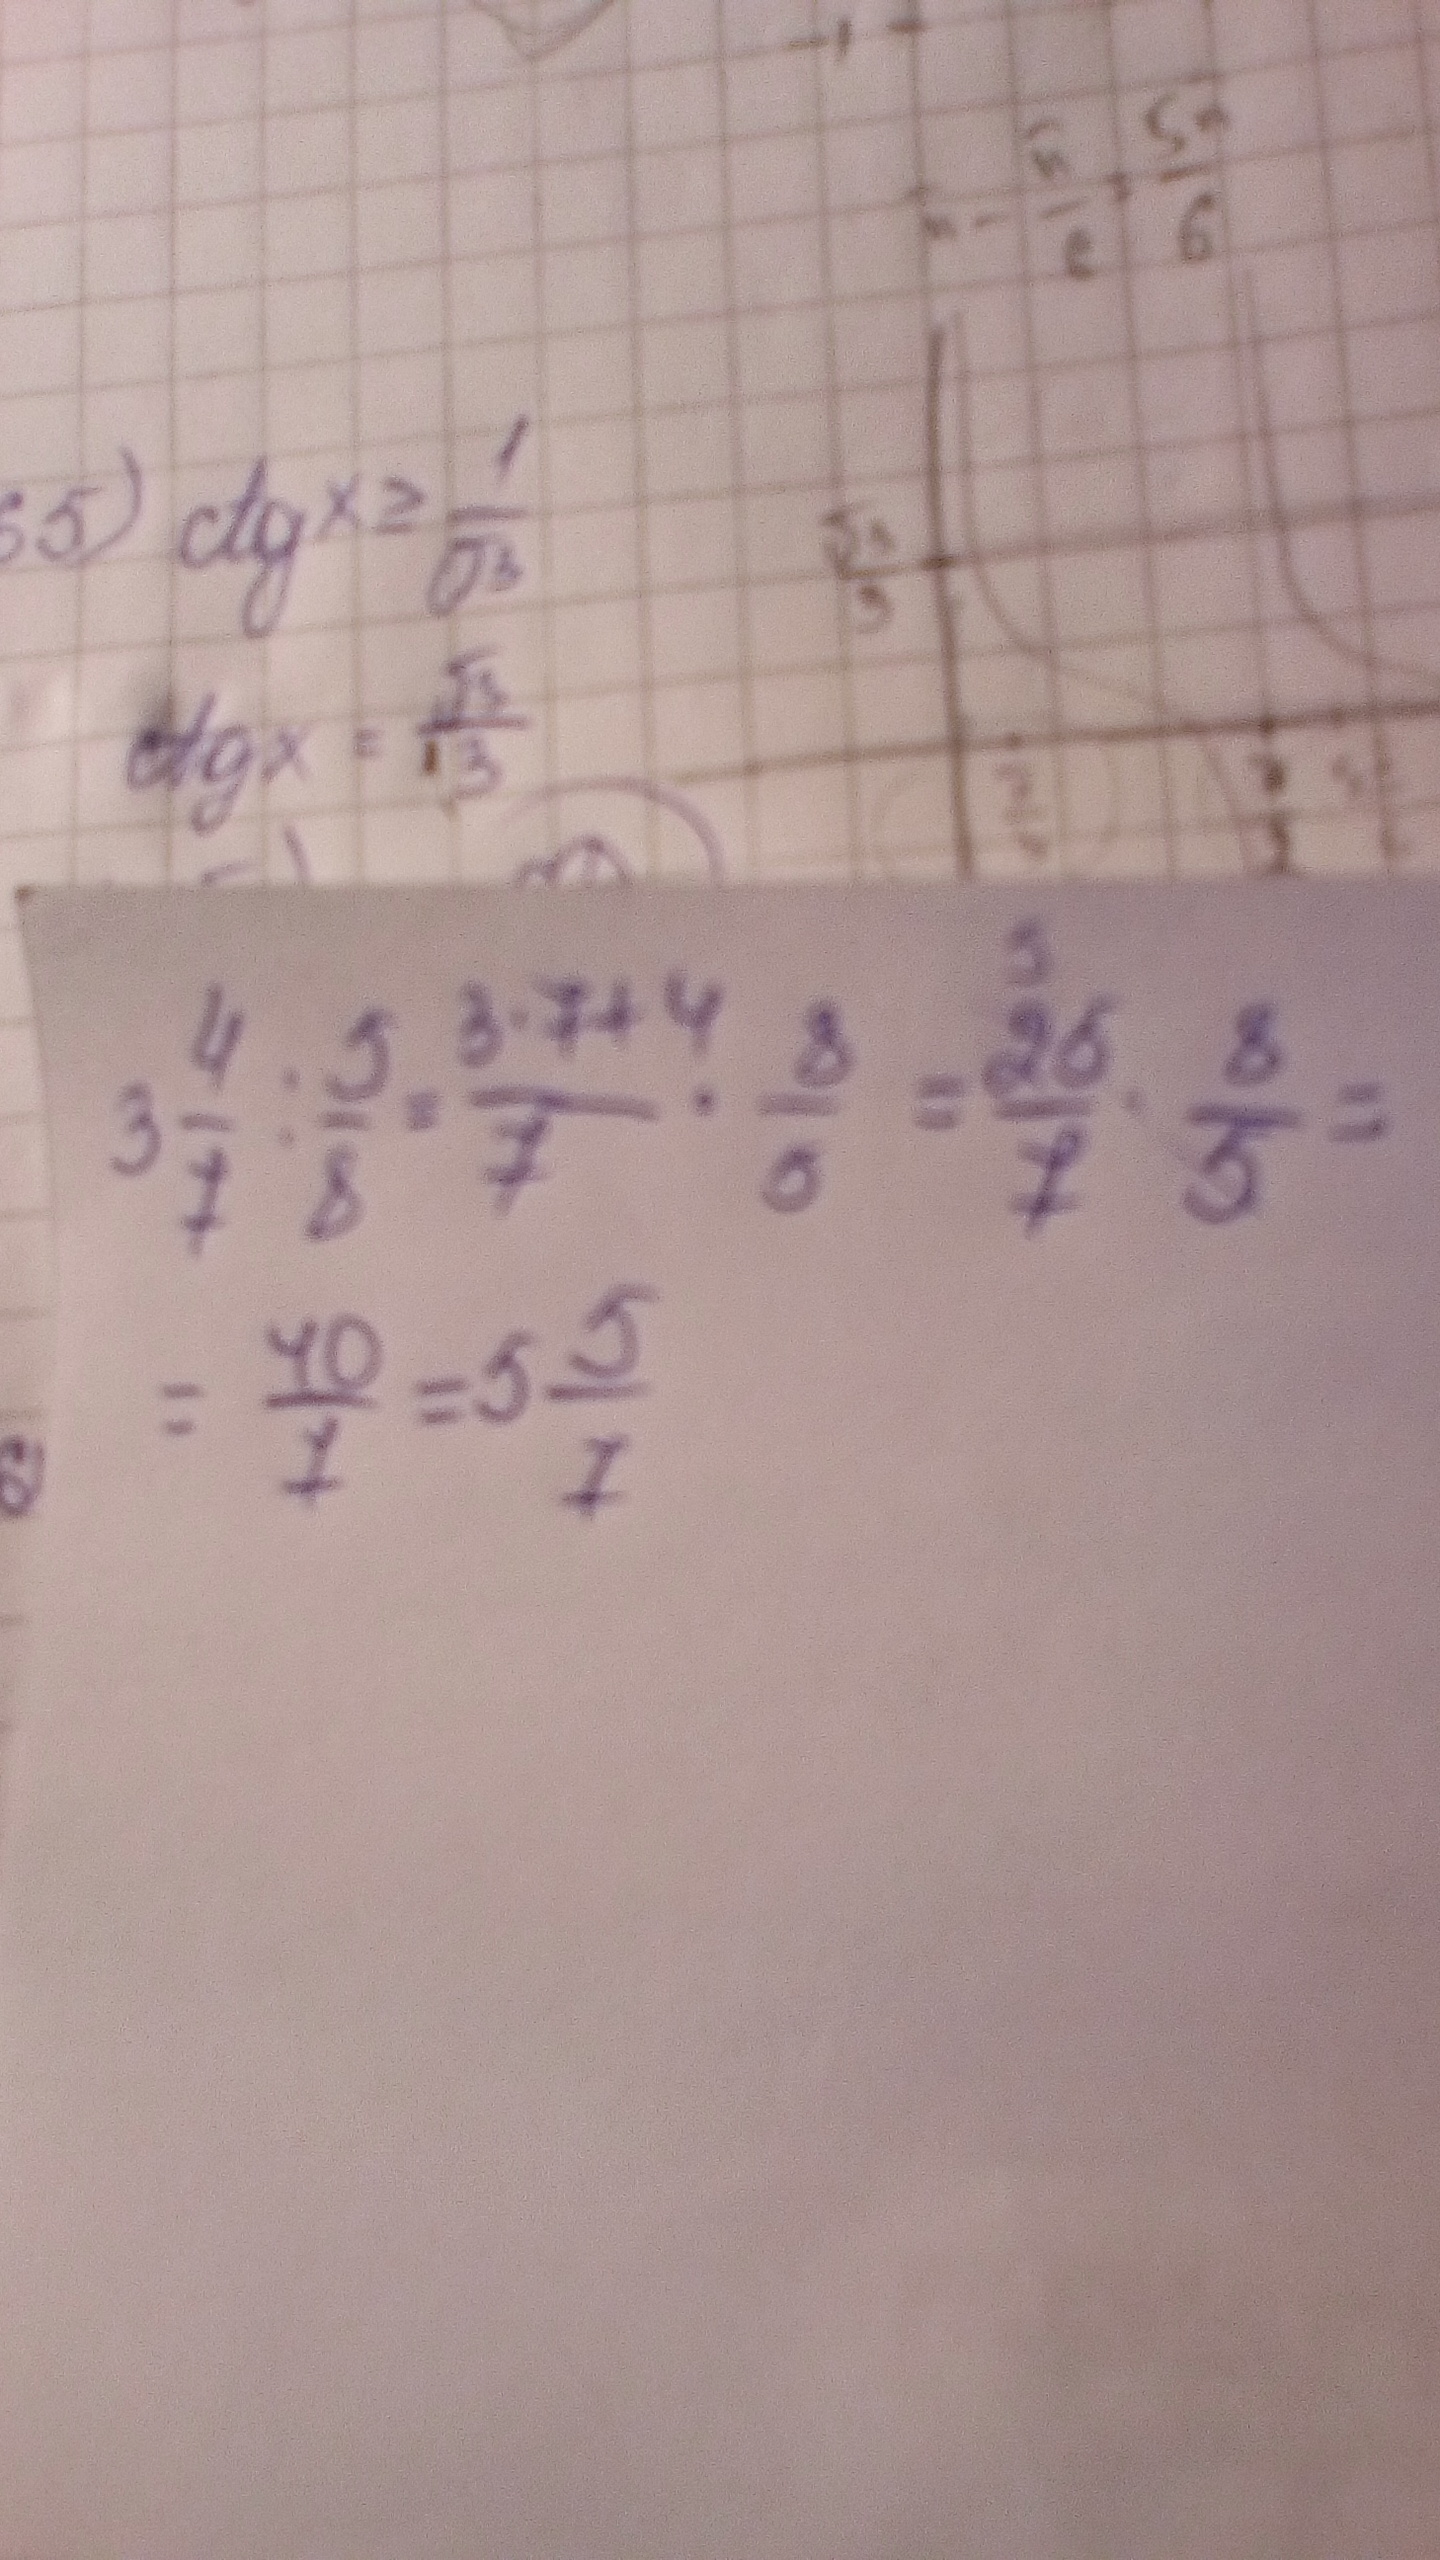 π - π/6 = 5π/6
65) ctg x ≥ 1/√3
√3/3
ctg x = √3/3
3 4/7 : 5/8 = (3·7+4)/7 · 8/5 = 25/7 · 8/5 =
5
= 40/7 = 5 5/7